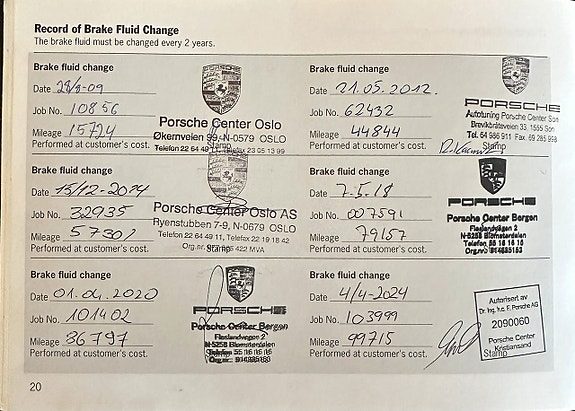 Record of Brake Fluid Change
The brake fluid must be changed every 2 years.
Brake fluid change
Date 28/9-09
Job No. 10856
Mileage 15724
Performed at customer's cost.
Porsche Center Oslo
Økernveien 99, N-0579 OSLO
Stamp
Telefon 22 64 49 11, Telefax 23 05 13 99
Brake fluid change
Date 21.05.2012.
Job No. 62432
Mileage 44844
Performed at customer's cost.
PORSCHE
Autotuning Porsche Center Son
Brevikbråteveien 33, 1555 Son
Tel. 64 986 911 Fax. 69 285 998
Stamp
Brake fluid change
Date 15/12-2014
Job No. 32935
Mileage 57301
Performed at customer's cost.
Porsche Center Oslo AS
Ryenstubben 7-9, N-0679 OSLO
Telefon 22 64 49 11, Telefax 22 19 18 42
Org.nr. 422 MVA
Stamp
Brake fluid change
Date 7.5.18
Job No. 007591
Mileage 79157
Performed at customer's cost.
PORSCHE
Porsche Center Bergen
N-5258 Blomsterdalen
Telefon 55 16 16 15
Brake fluid change
Date 01.04.2020
Job No. 101402
Mileage 86797
Performed at customer's cost.
PORSCHE
Porsche Center Bergen
N-5258 Blomsterdalen
Telefon 55 16 16 15
Brake fluid change
Date 4/4-2024
Job No. 103999
Mileage 99715
Performed at customer's cost.
Autorisert av
Dr. Ing. h.c. F. Porsche AG
2090060
Porsche Center
Kristiansand
Stamp
20